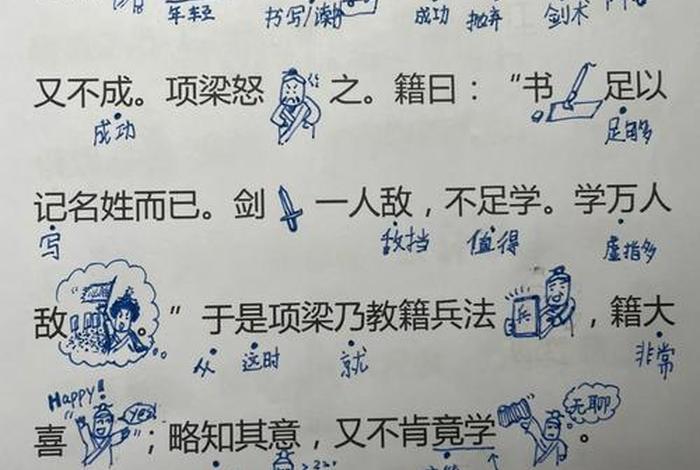 年轻 书写/读 成功 抛弃 剑术
又不成。项梁怒之。籍曰：“书足以
成功 足够多
记名姓而已。剑一人敌，不足学。学万人
写 敌挡 值得 虚指多
敌。”于是项梁乃教籍兵法，籍大
兵
从 这时 就 非常
Happy! yes! 无聊
喜；略知其意，又不肯竟学。